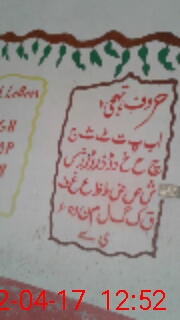 حروف تہجی
ا ب پ ت ٹ ث ج
چ ح خ د ڈ ذ ر ڑ ز ژ س
ش ص ض ط ظ ع غ ف
ق ک گ ل م ن و ہ ء
ی ے
2-04-17 12:52